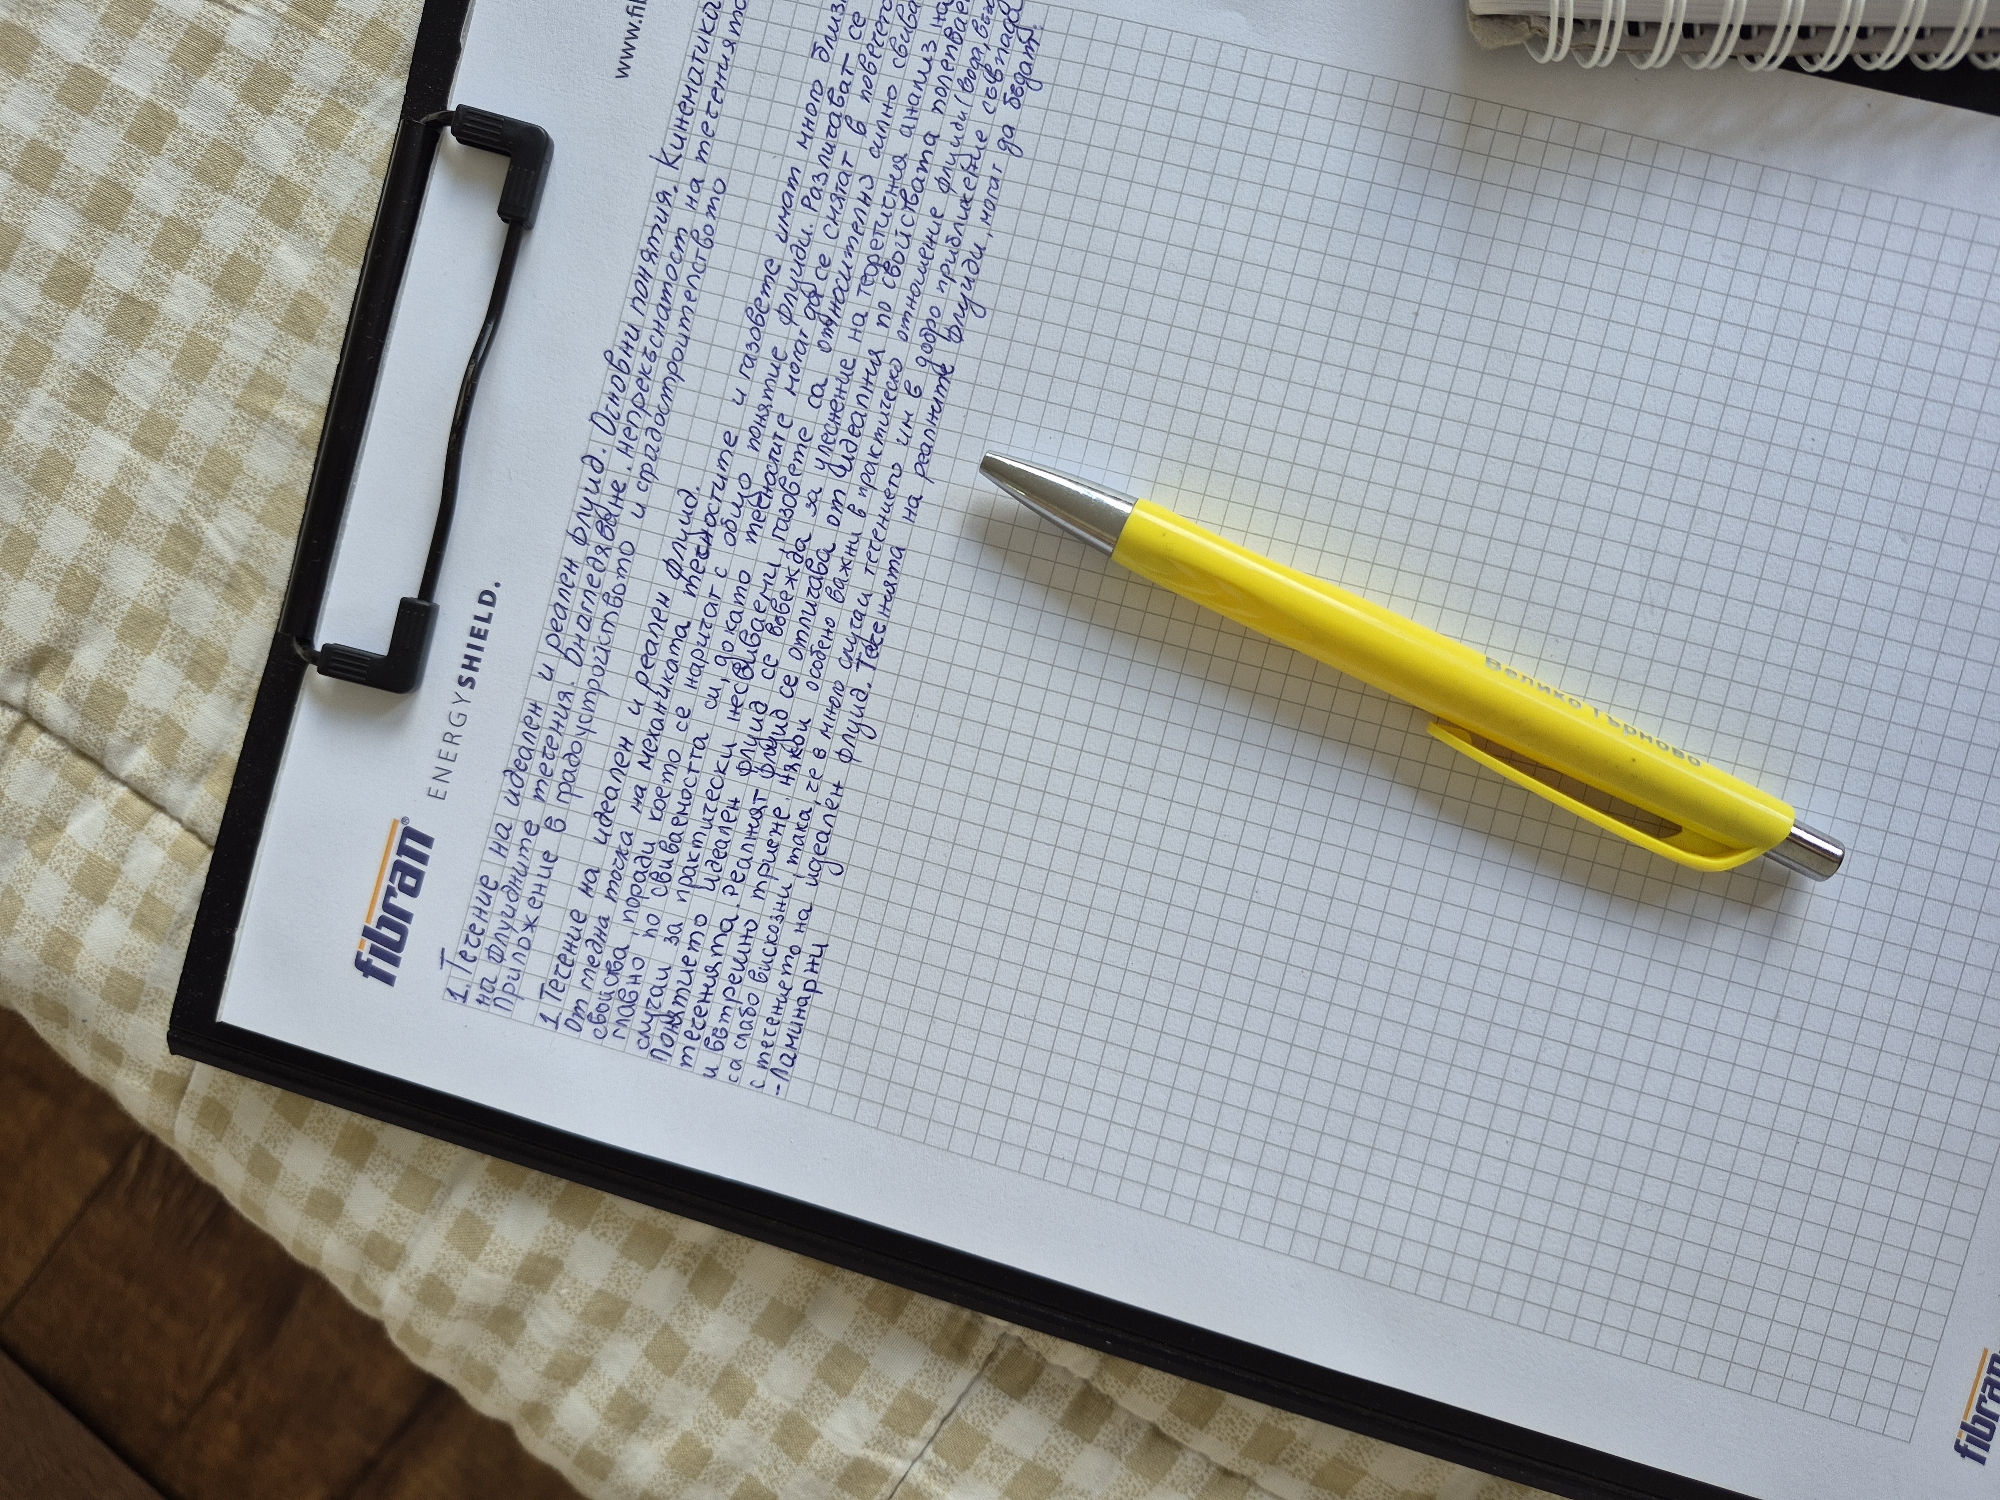 fibran®
ENERGYSHIELD.
www.fi
1. Течение на идеален и реален флуид. Основни понятия. Кинематика
на флуидните течения. Онагледяване. Непрекъснатост на теченията
Приложение в градоустройството и сградостроителството
1 Течение на идеален и реален флуид.
От гледна точка на механиката течностите и газовете имат много близ
свойства, поради което се наричат с общо понятие флуиди. Различават се
главно по свиваемостта си, докато течностите могат да се смятат в повечето
случаи за практически несвиваеми, газовете са относително силно свива
Понятието идеален флуид се въвежда за улеснение на теоретичния анализ на
теченията. Реалният флуид се отличава от идеалния по свойствата полепван
и вътрешно триене. Някои особено важни в практическо отношение флуиди (вода, възд
са слабо вискозни, така, че в много случаи течението им в добро приближение съвпада
с течението на идеален флуид. Теченията на реалните флуиди, могат да бъдат:
-Ламинарни
Велико Търново
fibran